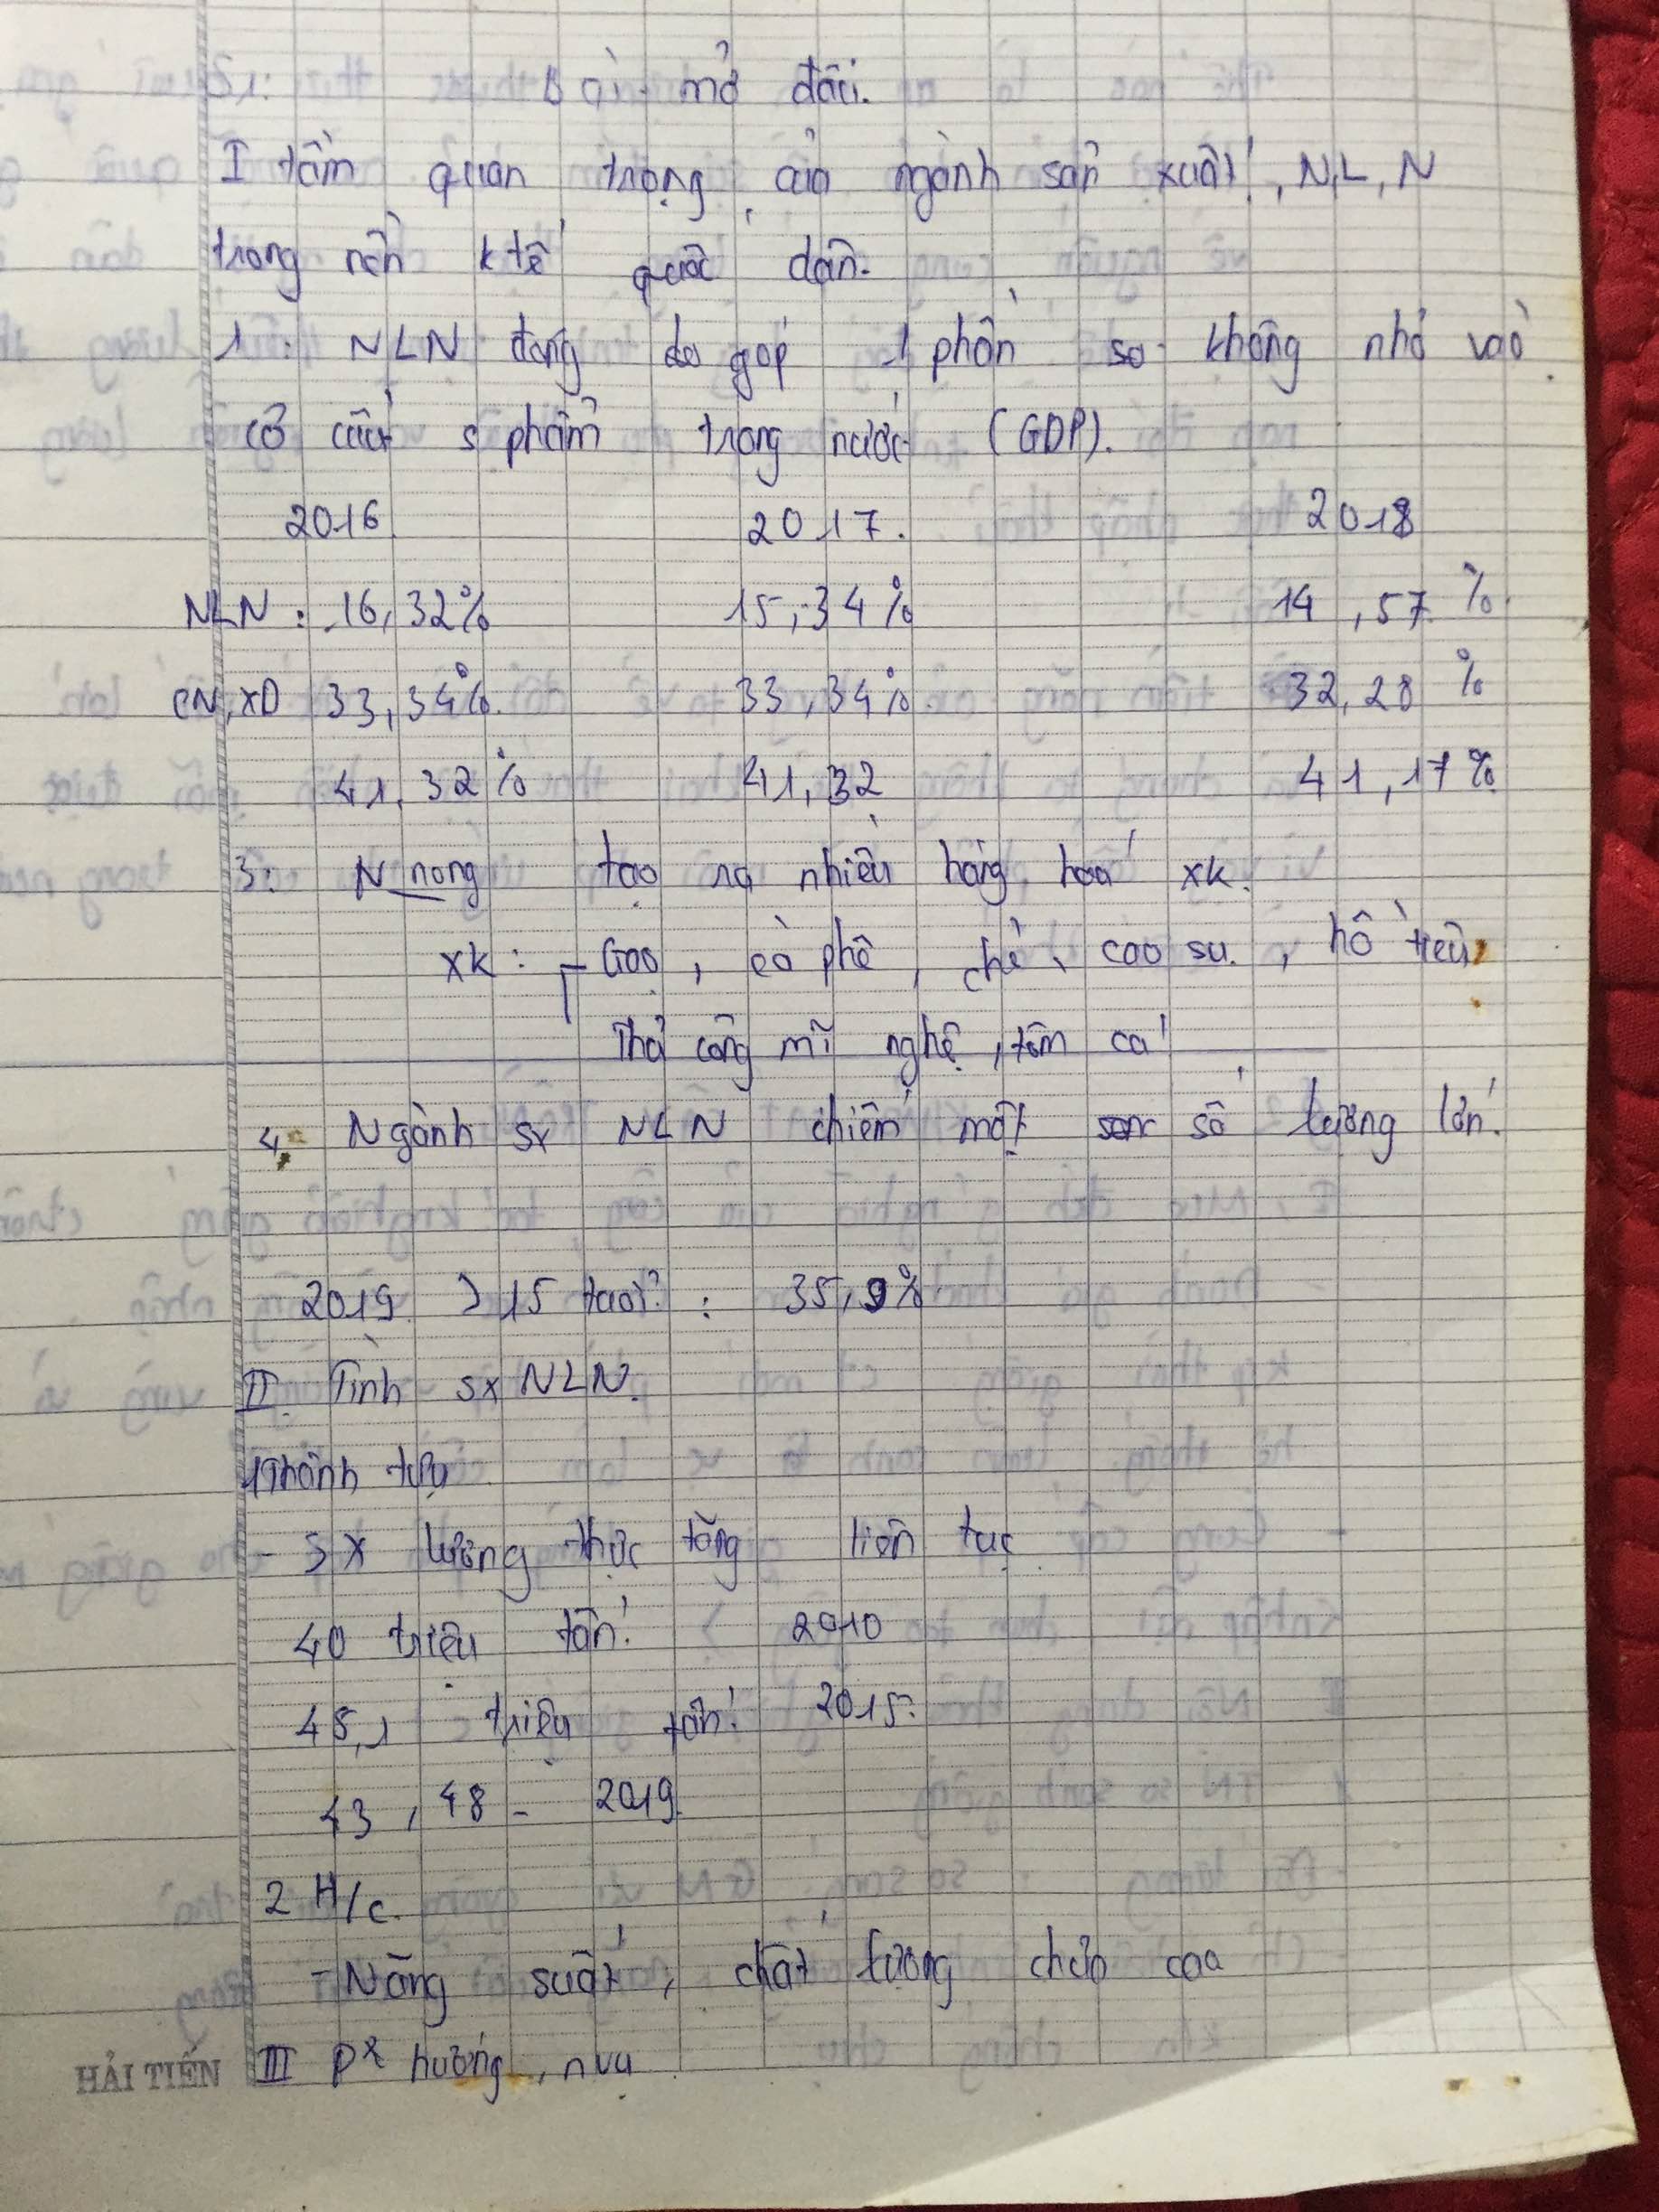 Bài mở đầu.
I tầm quan trọng của ngành sản xuất, N, L, N
trong nền k tế quốc dân.
1. NLN đang góp 1 phần không nhỏ vào
cơ cấu s phẩm trong nước (GDP).
2016 2017. 2018
NLN: 16,32% 15,34% 14,57%
CN, XD 33,34% 33,34% 32,28%
41,32% 41,32 41,17%
3: N nong tạo ra nhiều hàng hoá xk.
xk: - Gạo, cà phê, chè, cao su, hồ tiêu
Thủ công mĩ nghệ, tôm cá
4. Ngành sx NLN chiếm một số lượng lớn.
2019 > 15 tuổi: 35,9%
II Tình sx NLN.
1 Thành tựu
- SX lương thực tăng liên tục
40 triệu tấn. 2010
45,1 triệu tấn. 2015.
43,48 - 2019.
2 H/c.
- Năng suất, chất lượng chưa cao
III P² hướng, n vụ
HẢI TIẾN